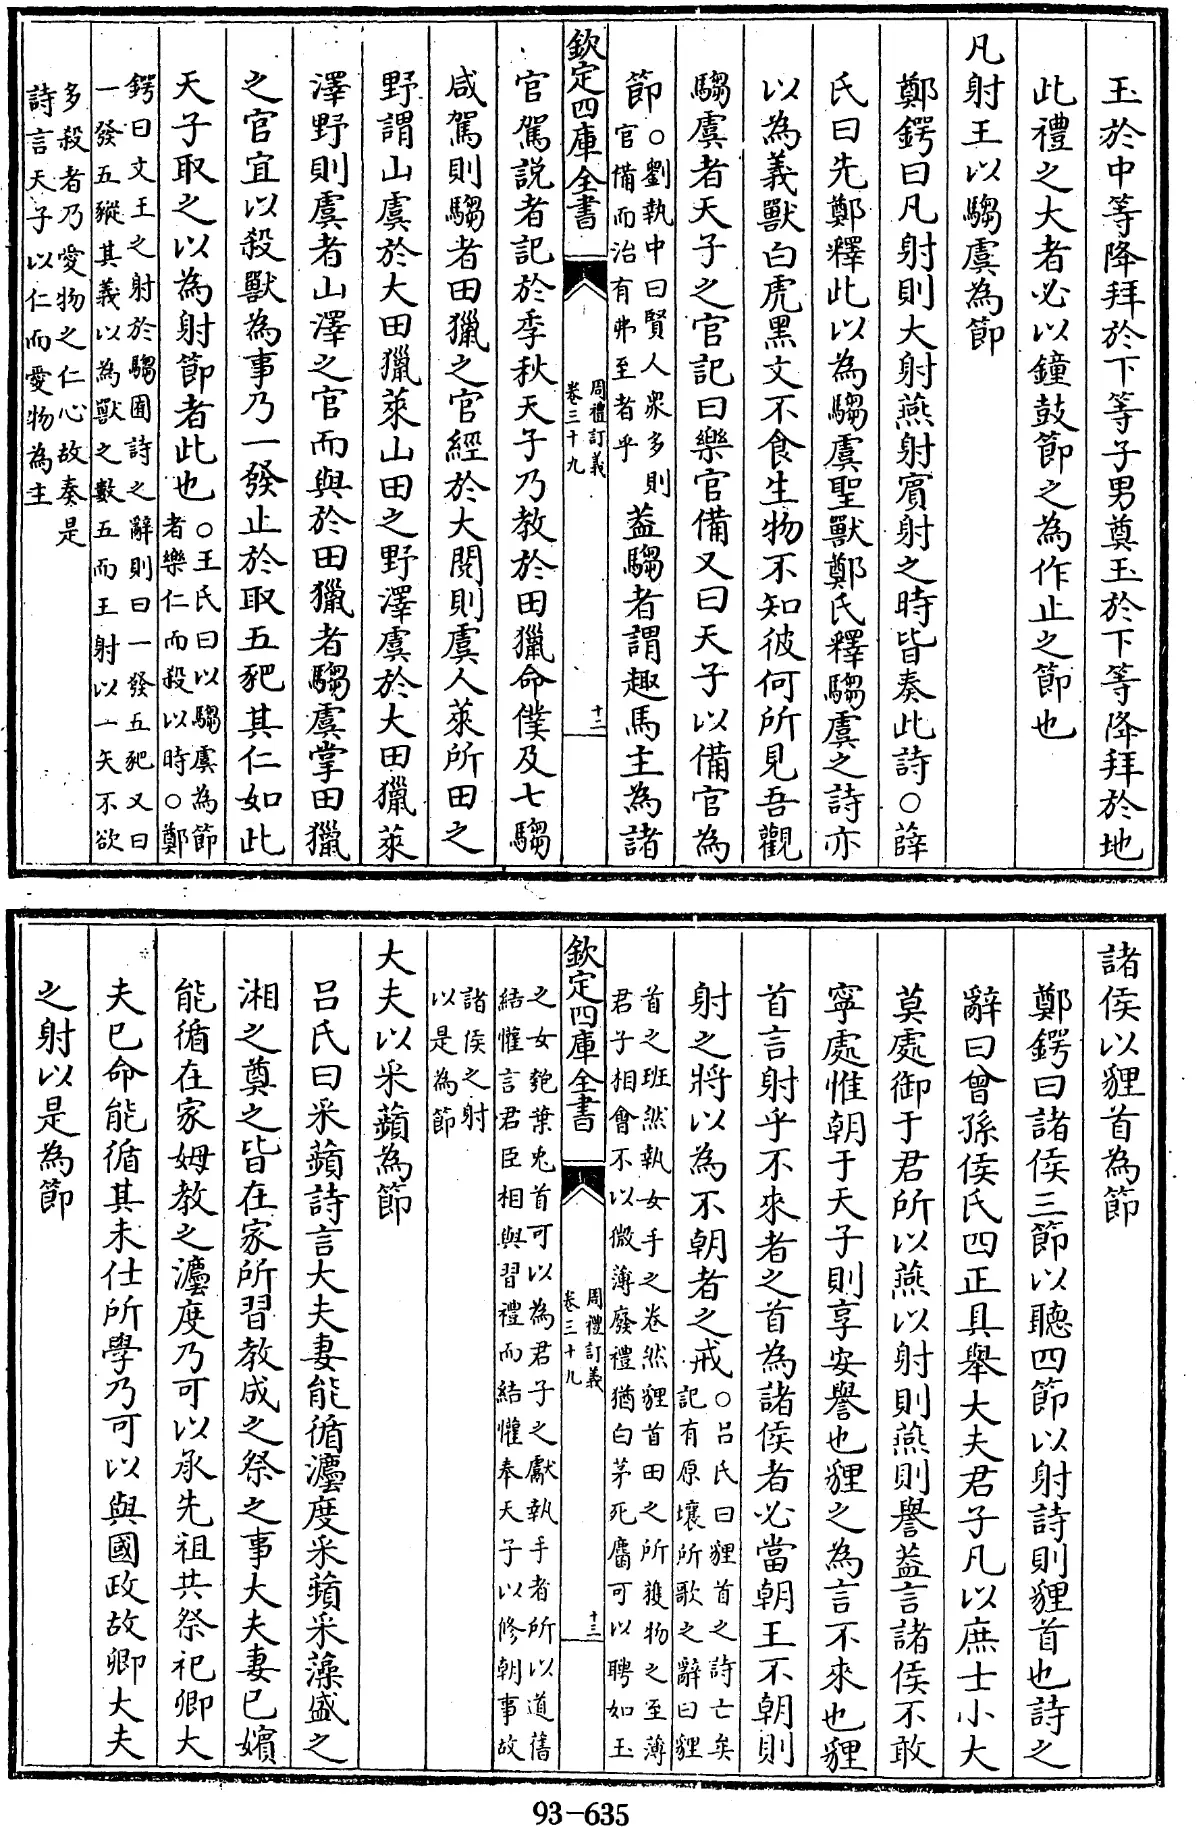 玉於中等降拜於下等子男奠玉於下等降拜於地
此禮之大者必以鐘鼓節之為作止之節也
凡射王以騶虞為節
鄭鍔曰凡射則大射燕射賓射之時皆奏此詩○薛
氏曰先鄭釋此以為騶虞聖獸鄭氏釋騶虞之詩亦
以為義獸白虎黑文不食生物不知彼何所見吾觀
騶虞者天子之官記曰樂官備又曰天子以備官為
節○劉執中曰賢人衆多則官備而治有弗至者乎蓋騶者謂趣馬主為諸
欽定四庫全書 周禮訂義 卷三十九 十二
官駕説者記於季秋天子乃教於田獵命僕及七騶
咸駕則騶者田獵之官經於大閱則虞人萊所田之
野謂山虞於大田獵萊山田之野澤虞於大田獵萊
澤野則虞者山澤之官而與於田獵者騶虞掌田獵
之官宜以殺獸為事乃一發止於取五豝其仁如此
天子取之以為射節者此也○王氏曰以騶虞為節者樂仁而殺以時○鄭
鍔曰文王之射於騶囿詩之辭則曰一發五豝又曰一發五豵其義以為獸之數五而王射以一矢不欲
多殺者乃愛物之仁心故奏是詩言天子以仁而愛物為主
諸侯以貍首為節
鄭鍔曰諸侯三節以聽四節以射詩則貍首也詩之
辭曰曾孫侯氏四正具舉大夫君子凡以庶士小大
莫處御于君所以燕以射則燕則譽蓋言諸侯不敢
寧處惟朝于天子則享安譽也貍之為言不來也貍
首言射乎不來者之首為諸侯者必當朝王不朝則
射之將以為不朝者之戒○吕氏曰貍首之詩亡矣記有原壤所歌之辭曰貍
首之班然執女手之卷然貍首田之所獲物之至薄君子相會不以微薄廢禮猶白茅死麕可以聘如玉
欽定四庫全書 周禮訂義 卷三十九 十三
之女匏葉兎首可以為君子之獻執手者所以道舊結懽言君臣相與習禮而結懽奉天子以修朝事故
諸侯之射以是為節
大夫以采蘋為節
吕氏曰采蘋詩言大夫妻能循灋度采蘋采藻盛之
湘之奠之皆在家所習教成之祭之事大夫妻已嬪
能循在家姆教之灋度乃可以承先祖共祭祀卿大
夫已命能循其未仕所學乃可以與國政故卿大夫
之射以是為節
93-635